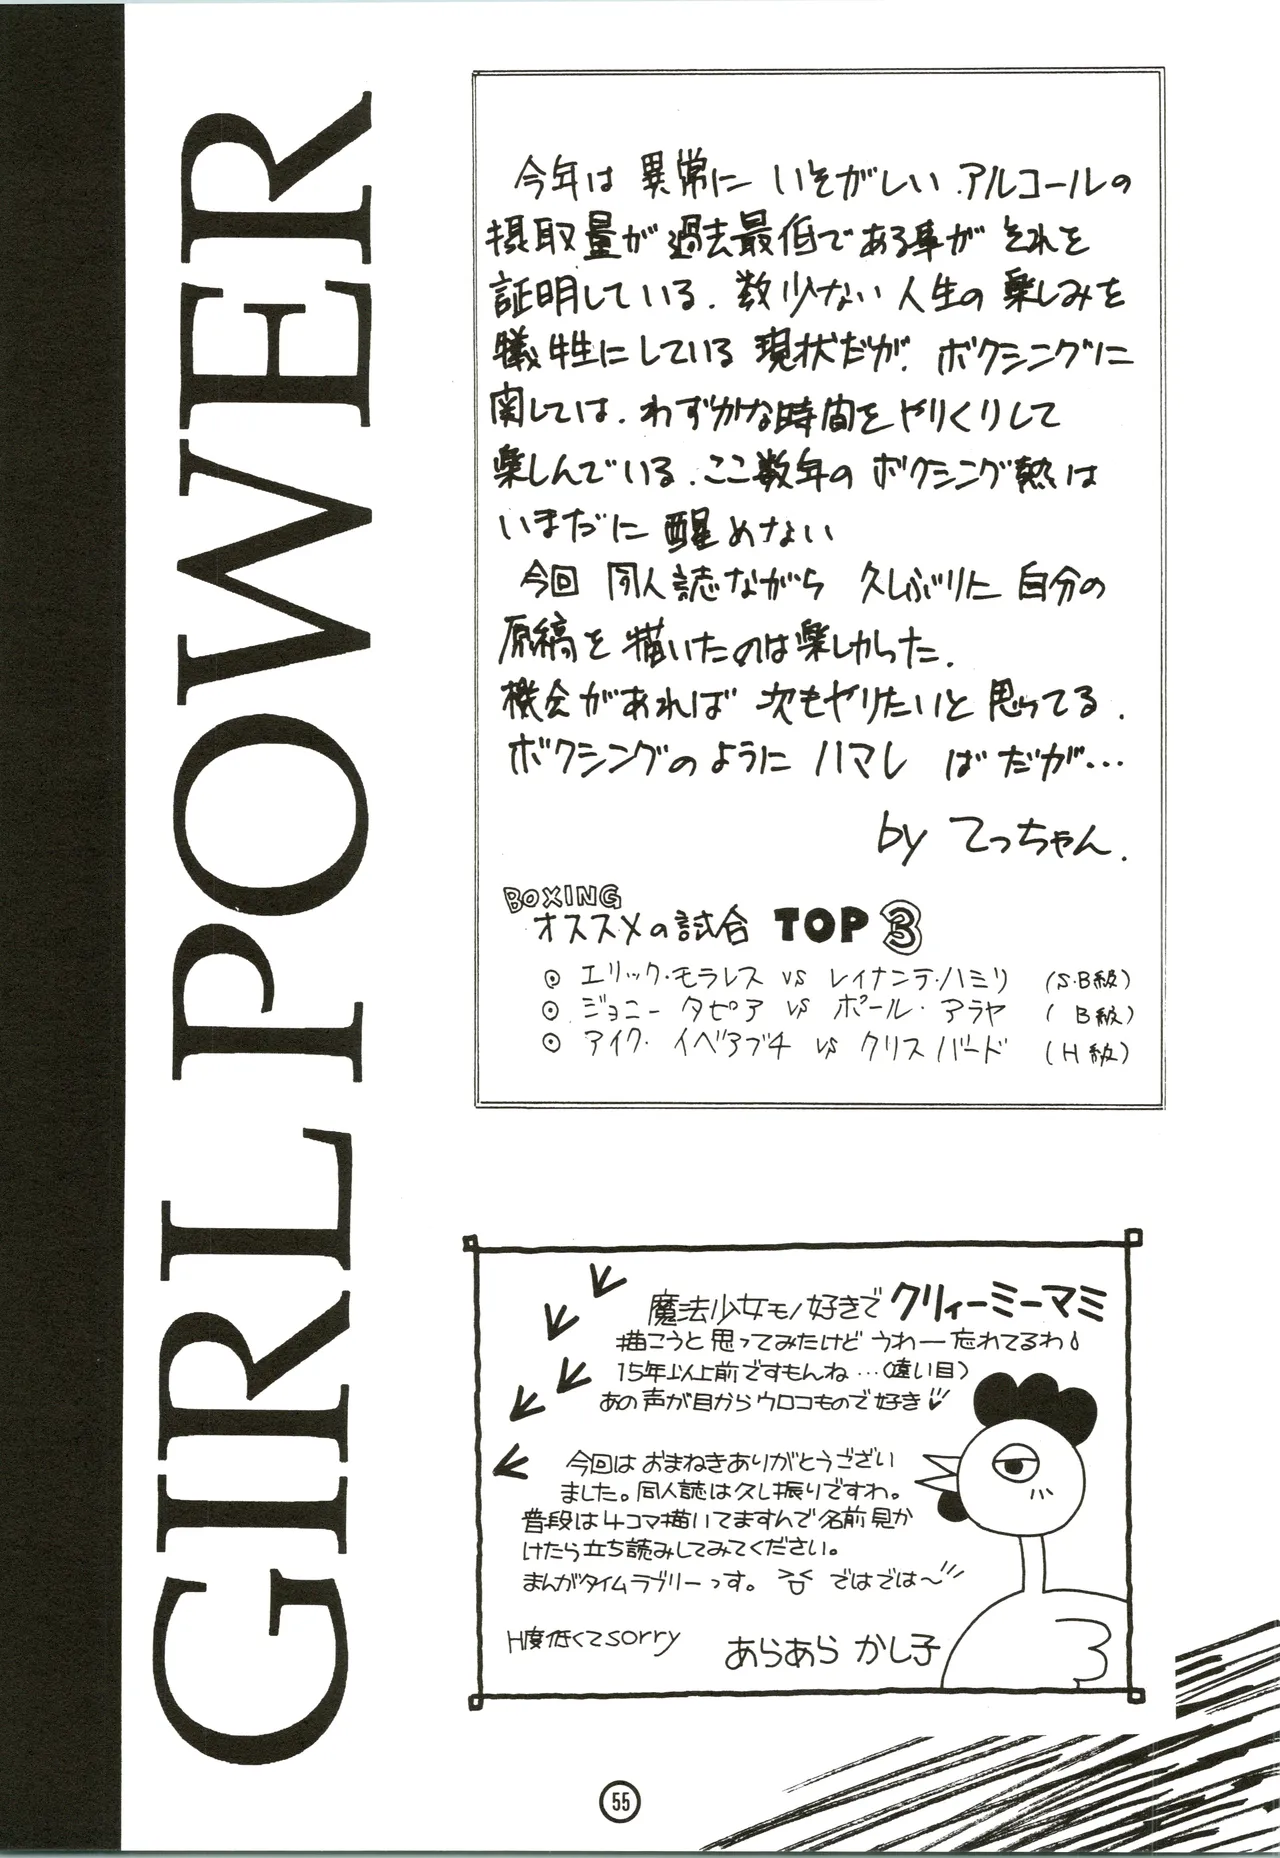 GIRL POWER
今年は 異常に いそがしい.アルコールの
摂取量が過去最低である事が それを
証明している.数少ない人生の楽しみを
犠牲にしている現状だが.ボクシングに
関しては.わずかな時間をやりくりして
楽しんでいる.ここ数年のボクシング熱は
いまだに 醒めない
今回 同人誌ながら 久しぶりに自分の
原稿を描いたのは楽しかった.
機会があれば 次もやりたいと思ってる.
ボクシングのように ハマレ ばだが…
by てっちゃん.
BOXING
オススメの試合 TOP 3
◎ エリック・モラレス VS レイナンテ・ハミリ (S・B級)
◎ ジョニー タピア VS ポール・アラヤ (B級)
◎ アイク・イベアブチ VS クリスバード (H級)
魔法少女モノ好きでクリィーミーマミ
描こうと思ってみたけど うわー忘れてるわ
15年以上前ですもんね…(遠い目)
あの声が目からウロコもので好き♡
今回はおまねきありがとうござい
ました。同人誌は久し振りですわ。
普段は4コマ描いてますんで名前見か
けたら立ち読みしてみてください。
まんがタイムラブリーっす。 ではでは〜
H度低くてsorry
あらあら かし子
55